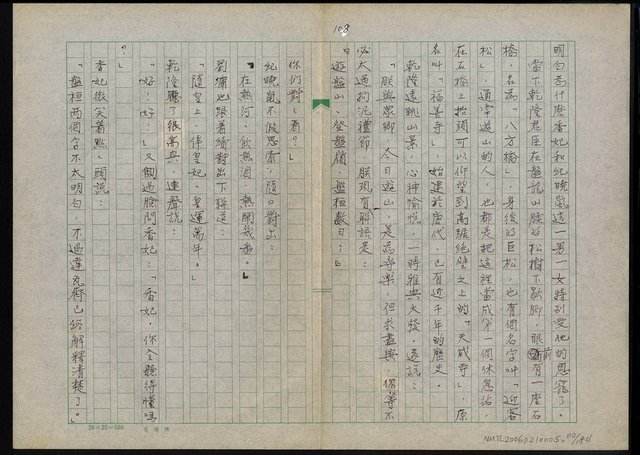 108
明白為什麼香妃和紀曉嵐這一男一女特別受他的恩寵了。
當下乾隆君臣在盤龍山腰的松樹下歇腳，眼前有一座石
橋，名為「八方橋」，身後的巨松，也有個名字叫「迎客
松」，通常遊山的人，也都是把這裡當成第一個休息站，
在石橋上抬頭可以仰望到高踞絕壁之上的「天成寺」，原
名叫「福善寺」，始建於唐代，已有近千年的歷史。
乾隆遠眺山景，心神愉悅，一時雅興大發，遂說：
「朕與眾卿，今日遊山，是為尋樂，但求盡興，你等不
必太過拘泥禮節，朕現有聯語是：
曰遊盤山，登盤嶺，盤桓數日；」
你們對上看。」
紀曉嵐不假思索，隨口對出：
「在熱河，飲熱酒，熱鬧幾番。」
劉墉也跟著續對出下聯道：
「隨皇上，伴皇妃，皇運萬年。」
乾隆聽了很高興，連聲說：
「好！好！」又側過臉問香妃：「香妃，你全聽得懂嗎
？」
香妃微笑着點點頭說：
「盤桓兩個字不太明白，不過達瓦齊已經解釋清楚了。」
20×25=500
NMTL20060210005